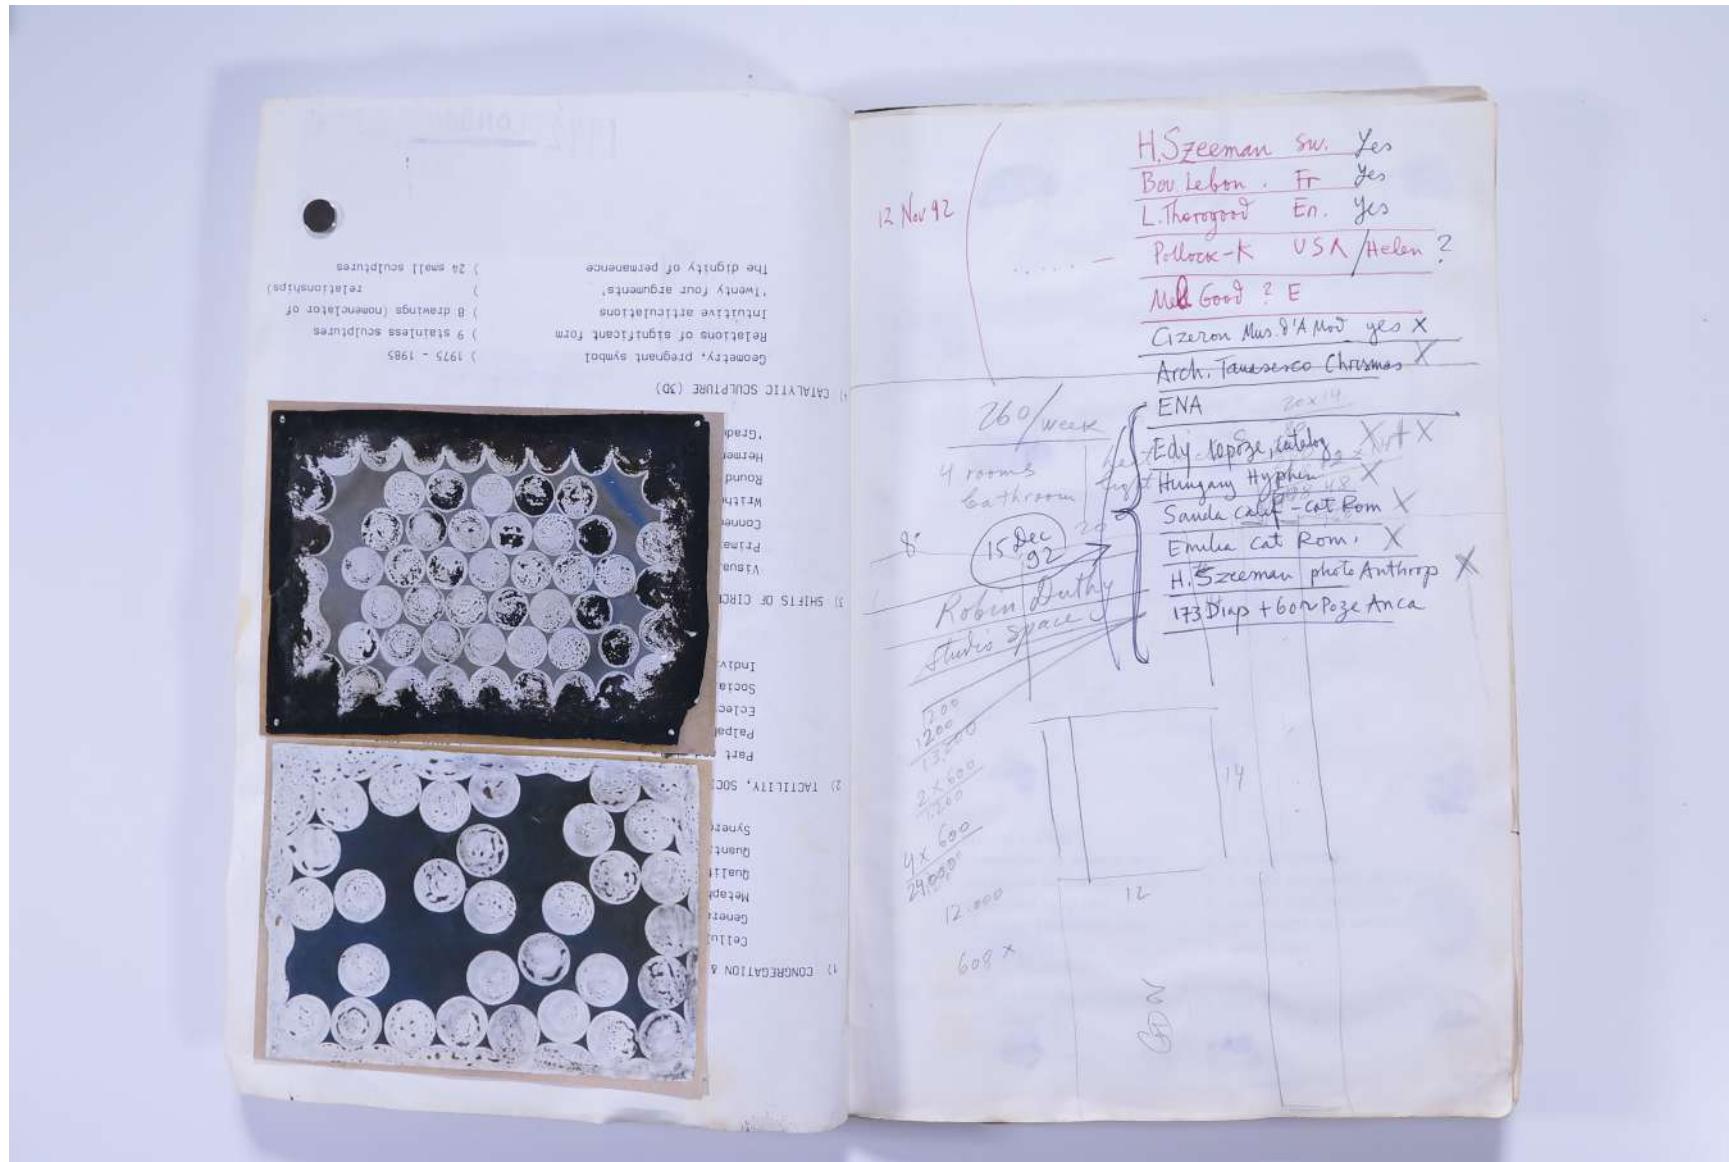 1) CONGREGATION &
Cellul
Genera
Metaph
Qualit
Quanti
Synerg
2) TACTILITY, SOC
Part
Palpal
Eclec
Social
Indivi
3) SHIFTS OF CIRC
Visua
Prima
Connec
Writh
Round
Hermet
'Grad
4) CATALYTIC SCULPTURE (3D)
Geometry, pregnant symbol ) 1975 - 1985
Relations of significant form ) 9 stainless sculptures
Intuitive articulations ) 8 drawings (nomenclator of
'Twenty four arguments' ) relationships)
The dignity of permanence ) 24 small sculptures
12 Nov 92
H. Szeeman SW. Yes
Bov. Lebon. Fr Yes
L. Thorogood En. Yes
Pollock-K USA / Helen ?
Mel Good ? E
Cizeron Mus. d'A Mod yes X
Arch. Tanasesco Chrismas X
ENA 20x14
Edy topoze, catalog X + X
Hungary Hyphen X
Sanda calif - cat Rom X
Emilia cat Rom. X
H. Szeeman photo Anthrop X
173 Diap + 60 Poze Anca
260/week
4 rooms
bathroom
8
15 Dec
92
Robin Duthy
studio space
1200
1200
13,200
2 x 600
1,200
4 x 600
24,000
12.000
608 x
14
12